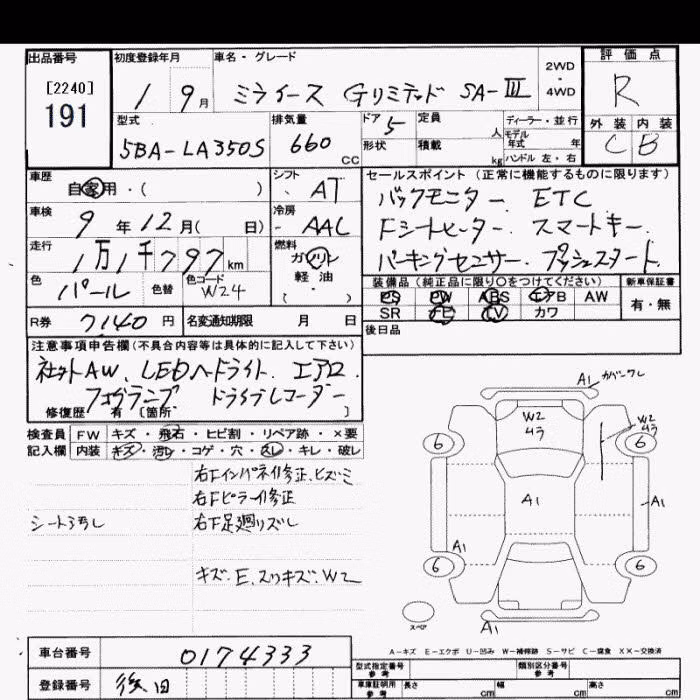 出品番号
[2240]
191
初度登録年月
1 9月
車名・グレード
ミライース Gリミテッド SA-III
2WD
・
4WD
評価点
R
外装 内装
C B
型式
5BA-LA350S
排気量
660
CC
ドア 5
形状
定員
人
積載
kg
ディーラー・並行
モデル
年式 年
ハンドル 左・右
車歴
自家用・( )
シフト
AT
車検
9年12月( 日)
冷房
AAC
走行
1万1千797km
燃料
ガソリン
軽油
( )
色
パール
色替
色コード
W24
R券 7140円
名変通知期限 月 日
セールスポイント(正常に機能するものに限ります)
バックモニター ETC
Fシートヒーター スマートキー
パーキングセンサー プッシュスタート
装備品(純正品に限り○をつけてください)
PS PW ABS エアB AW
SR ナビ TV カワ
新車保証書
有・無
後日品
注意事項申告欄(不具合内容等は具体的に記入して下さい)
社外AW、LEDヘッドライト エアロ
フォグランプ ドライブレコーダー
修復歴 有 〔箇所 〕
検査員
記入欄
FW キズ・飛石・ヒビ割・リペア跡・×要
内装 キズ・汚レ・コゲ・穴・スレ・キレ・破レ
右Fインパネイ修正、ヒズミ
右Fピラーイ修正
シートヨゴレ
右F足廻リズレ
キズ、E、スリキズ、W2
A1 ガバンクレ
W2
ムラ
W2
ムラ
6
6
A1
A1
A1
6
6
スペア
A1
A-キズ E-エクボ U-凹み W-補修跡 S-サビ C-腐食 XX-交換済
車台番号 0174333
登録番号 後日
型式指定番号
参考
類別区分番号
参考
車庫証明用
参考
長さ cm
幅 cm
高さ cm